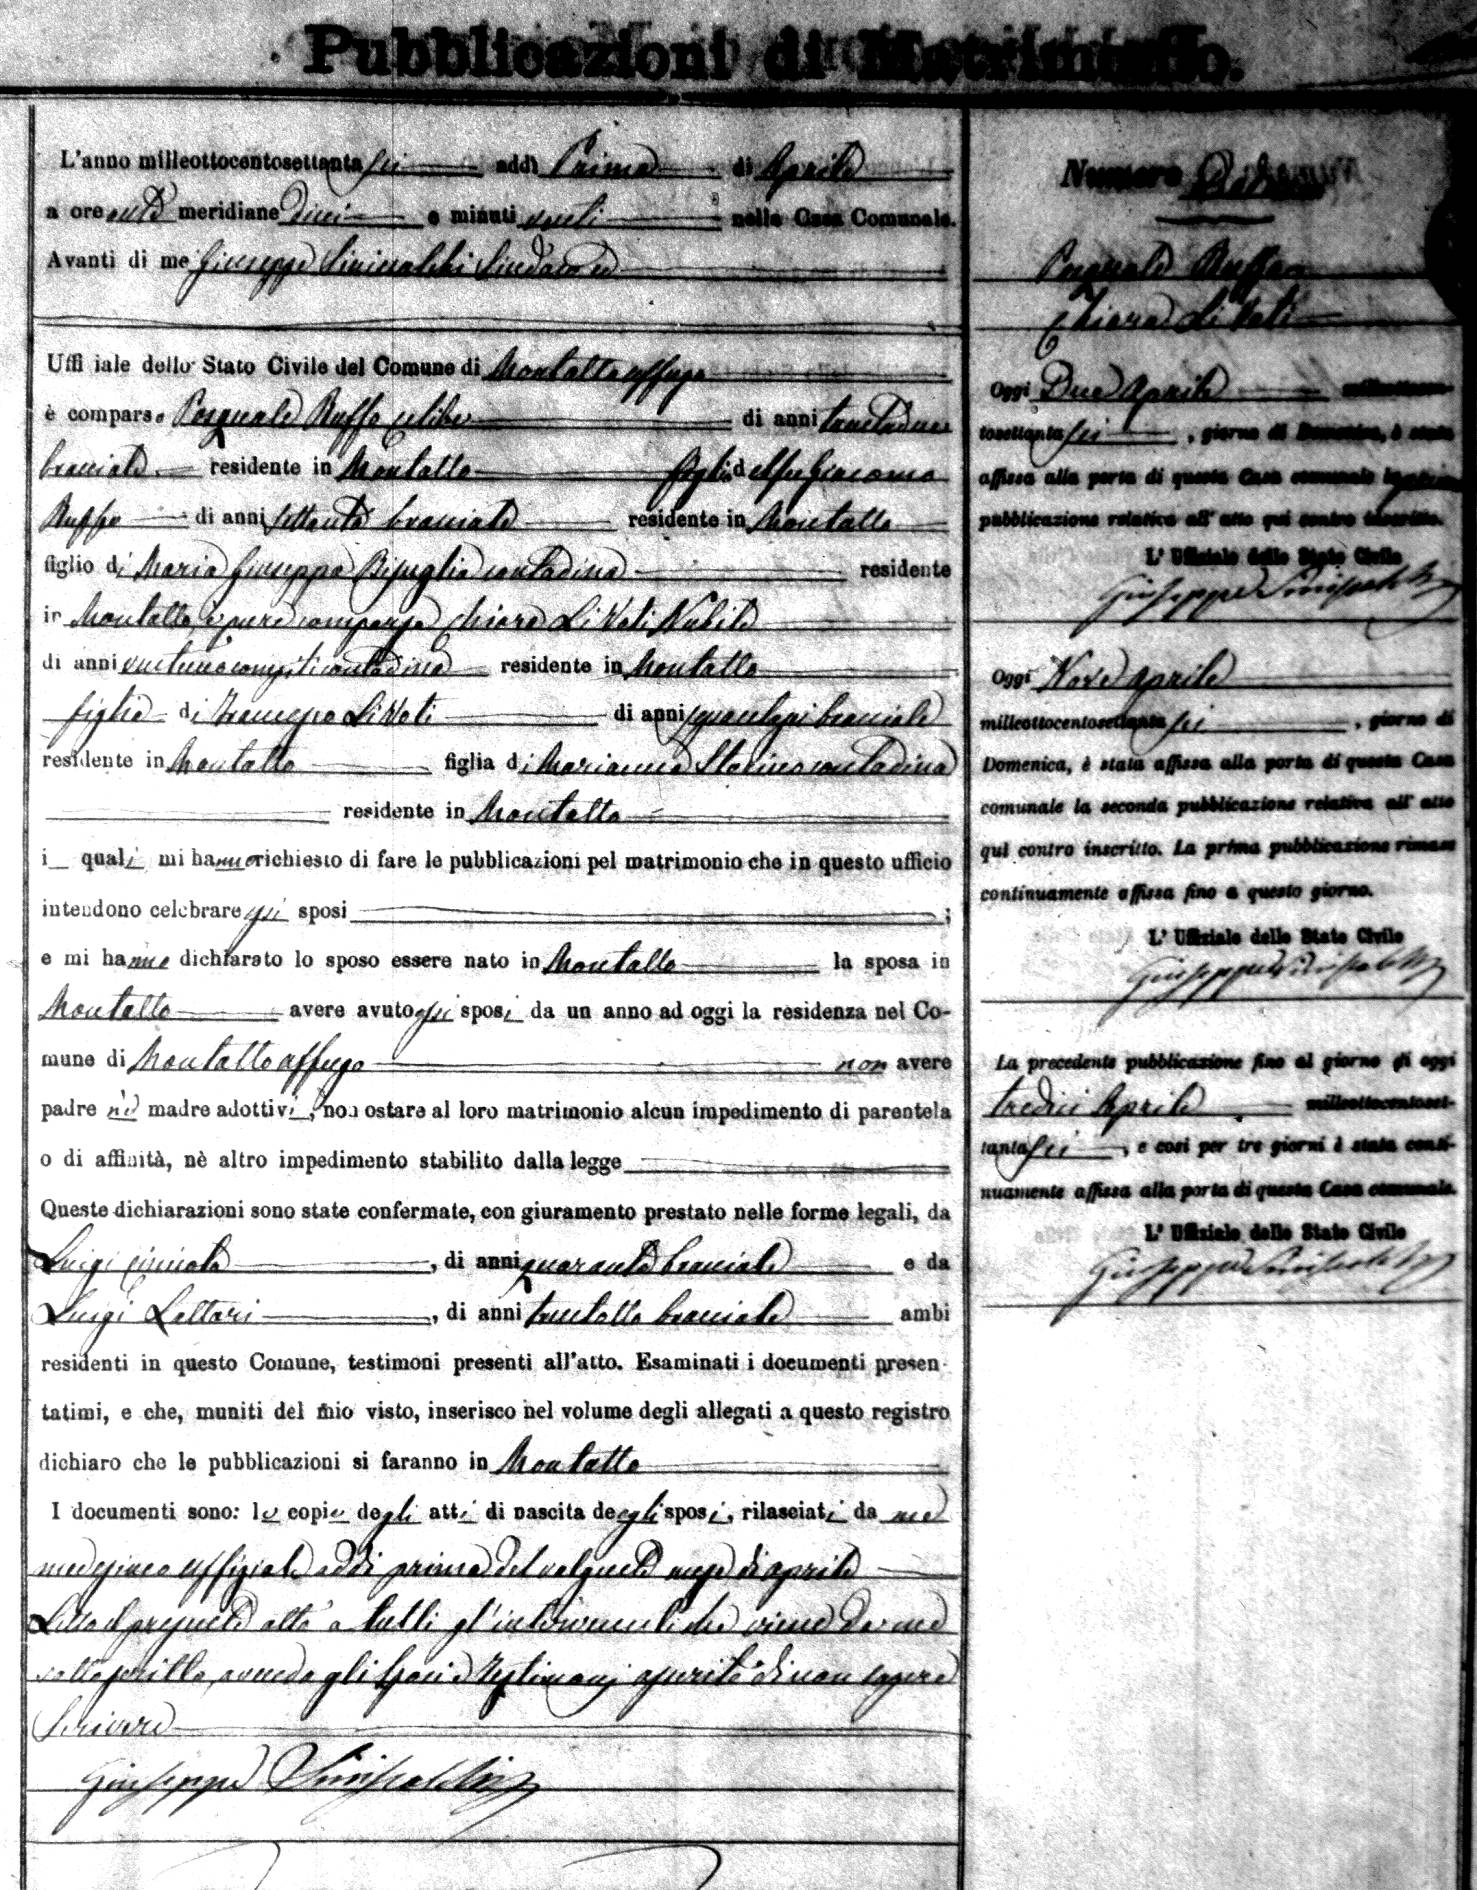 Pubblicazioni di Matrimonio.
L'anno milleottocentosettanta sei addì Primo di Aprile
a ore anti meridiane dieci e minuti venti nella Casa Comunale.
Avanti di me Giuseppe Sinisalchi Sindaco ed
Uffi iale dello Stato Civile del Comune di Montalto uffugo
è comparso Pasquale Ruffo celibe di anni trentadue
bracciale residente in Montalto figlio del fu Giacomo
Ruffo di anni settanta bracciale residente in Montalto
figlio di Maria Giuseppa contadina residente
in Montalto, è pure comparsa Chiara Li Voti Nubile
di anni compiti contadina residente in Montalto
figlia di Francesco Li Voti di anni bracciale
residente in Montalto figlia di Marianna contadina
residente in Montalto
i quali mi hanno richiesto di fare le pubblicazioni pel matrimonio che in questo ufficio
intendono celebrare essi sposi ;
e mi hanno dichiarato lo sposo essere nato in Montalto la sposa in
Montalto avere avuto essi sposi da un anno ad oggi la residenza nel Co-
mune di Montalto uffugo non avere
padre nè madre adottivi, non ostare al loro matrimonio alcun impedimento di parentela
o di affinità, nè altro impedimento stabilito dalla legge
Queste dichiarazioni sono state confermate, con giuramento prestato nelle forme legali, da
Luigi , di anni quaranta bracciale e da
Luigi Lattari , di anni trentotto bracciale ambi
residenti in questo Comune, testimoni presenti all'atto. Esaminati i documenti presen-
tatimi, e che, muniti del mio visto, inserisco nel volume degli allegati a questo registro
dichiaro che le pubblicazioni si faranno in Montalto
I documenti sono: le copie degli atti di nascita degli sposi, rilasciati da me
medesimo uffiziale addì primo del volgente mese di aprile
Letto il presente atto a tutti gl'intervenuti che viene da me
sottoscritto, avendo gli sposi e testimonj asserito di non sapere
scrivere
Giuseppe Sinisalchi
Numero
Pasquale Ruffo
Chiara Li Voti
Oggi Due Aprile milleottocen-
tosettanta sei , giorno di Domenica, è stata
affissa alla porta di questa Casa comunale la prima
pubblicazione relativa all' atto qui contro inscritto.
L' Uffiziale dello Stato Civile
Giuseppe Sinisalchi
Oggi Nove Aprile
milleottocentosettanta sei , giorno di
Domenica, è stata affissa alla porta di questa Casa
comunale la seconda pubblicazione relativa all' atto
qui contro inscritto. La prima pubblicazione rimase
continuamente affissa fino a questo giorno.
L' Uffiziale dello Stato Civile
Giuseppe Sinisalchi
La precedente pubblicazione fino al giorno di oggi
tredici Aprile milleottocentoset-
tanta sei , e così per tre giorni è stata conti-
nuamente affissa alla porta di questa Casa comunale.
L' Uffiziale dello Stato Civile
Giuseppe Sinisalchi